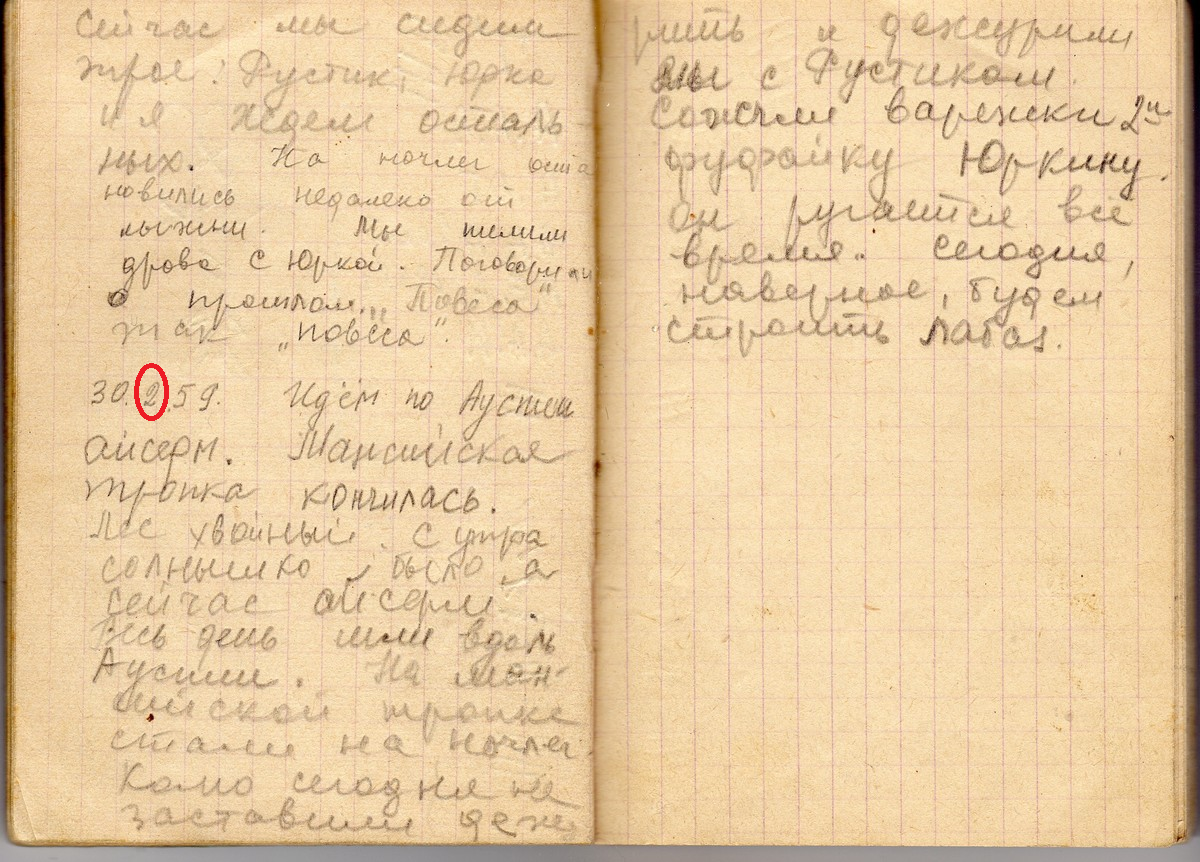 Сейчас мы сидим
трое: Рустик, Юрка
и я. Ждем осталь-
ных. На ночлег оста
новились недалеко от
лыжни. Мы пилили
дрова с Юркой. Поговорили
о прошлом. „Повеса"
так „повеса".
30.2.59. Идём по Ауспии
айсерм. Мансийская
тропка кончилась.
Лес хвойный. С утра
солнышко было, а
сейчас айсерм.
Весь день шли вдоль
Ауспии. На ман-
сийской тропке
стали на ночлег.
Колмо сегодня не
заставили дежу
рить и дежурили
мы с Рустиком.
Сожгли варежки и 2ую
фуфайку Юркину.
Он ругается всё
время. Сегодня,
наверное, будем
строить лабаз.